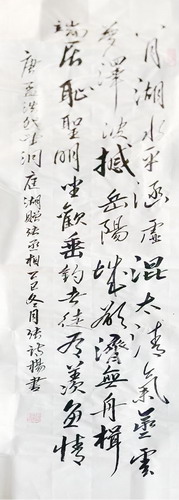 八月湖水平涵虚混太清氣蒸雲
夢澤波撼岳陽城欲濟無舟楫
端居恥聖明坐觀垂釣者徒有羡魚情
唐孟浩然 洞庭湖贈張丞相乙巳冬月張 揚書